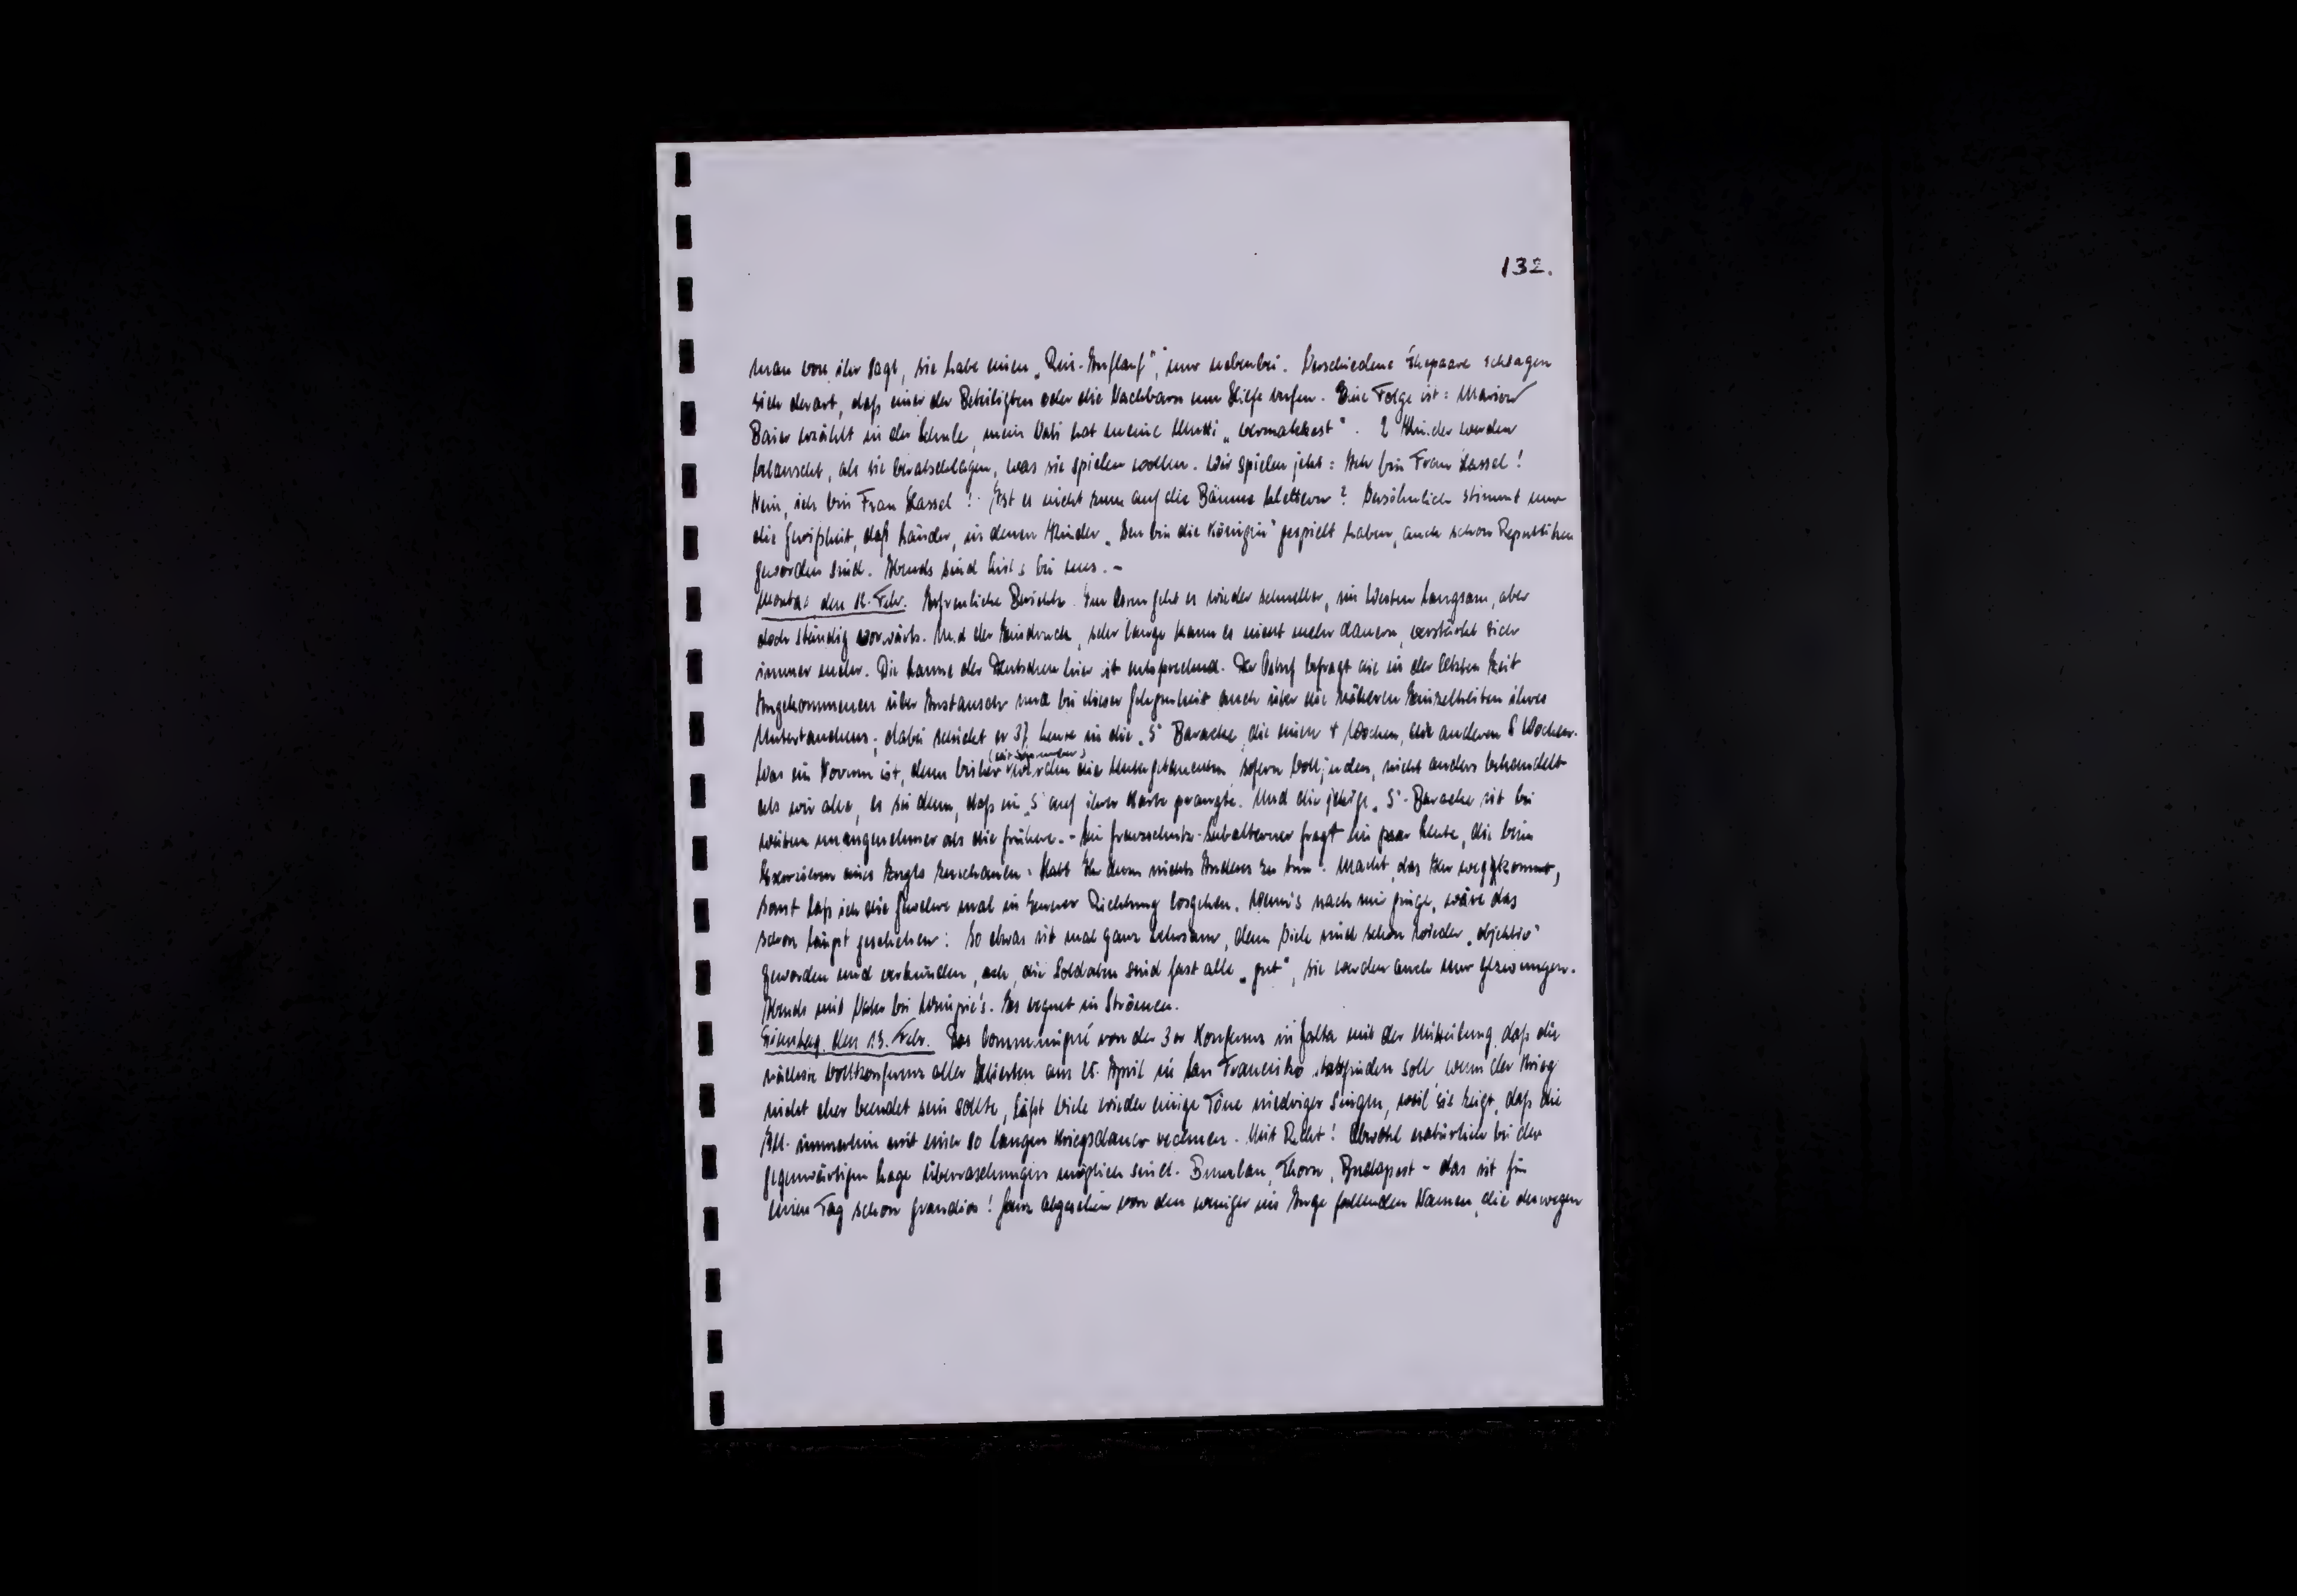 132.
man von ihr sagt, sie habe einen „Reis-Auflauf", nur nebenbei. Verschiedene Ehepaare schlagen
sich derart, daß einer der Beteiligten oder die Nachbarn um Hilfe rufen. Eine Folge ist: Marion
Baier erzählt in der Schule, mein Vati hat meine Mutti „vermakkest". 2 Kinder werden
belauscht, als sie beratschlagen, was sie spielen wollen. Wir spielen jetzt: Ich bin Frau Lassel!
Nein, ich bin Frau Lassel! Ist es nicht zum auf die Bäume klettern? Versöhnlich stimmt nur
die Gewißheit, daß Länder, in denen Kinder „Ich bin die Königin" gespielt haben, auch schon Republiken
geworden sind. Abends sind bei uns. –
Montag den 12. Febr. Erfreuliche Berichte. Im Osten geht es wieder schneller, im Westen langsam, aber
doch ständig vorwärts. Und der Eindruck, sehr lange kann es nicht mehr dauern, verstärkt sich
immer mehr. Die Laune der Deutschen hier ist entsprechend. Der befragt die in der letzten Zeit
Angekommenen über Austausch und bei dieser Gelegenheit auch über die näheren Einzelheiten ihres
Untertauchens; dabei schickt er 37 Leute in die „S" Baracke, die einen 4 Wochen, die anderen 8 Wochen.
Was ein Novum ist, denn bisher wurden die Untergetauchten, sofern Volljuden, nicht anders behandelt
als wir alle, es sei denn, daß ein „S" auf ihrer Karte prangte. Und die jetzige „S"-Baracke ist bei
weitem unangenehmer als die frühere. – Ein Grenzschutz-Subalterner fragt ein paar Leute, die beim
Exerzieren eines Zugs zuschauen: Habt Ihr denn nichts Anderes zu tun? Macht, das Ihr wegkommt,
sonst laß ich die Gewehre mal in Eurer Richtung losgehen. Wenn's nach mir ginge, wäre das
schon längst geschehen! So etwas ist mal ganz lehrsam, denn Viele sind schon wieder „objektiv"
geworden und verkünden, ach, die Soldaten sind fast alle „gut", sie werden auch nur gezwungen.
Abends mit Vater bei . Es regnet in Strömen.
Dienstag, den 13. Febr. Das Communiqué von der 3er Konferenz in Jalta mit der Mitteilung, daß die
nächste Vollkonferenz aller Alliierten am 25. April in San Francisko stattfinden soll, wenn der Krieg
nicht eher beendet sein sollte, läßt Viele wieder einige Töne niedriger singen, weil sie zeigt, daß die
All. immerhin mit einer so langen Kriegsdauer rechnen. Mit Recht! Obwohl natürlich bei der
gegenwärtigen Lage Überraschungen möglich sind. Bunzlau, Thorn, Budapest – das ist für
einen Tag schon grandios! Ganz abgesehen von den weniger ins Auge fallenden Namen, die deswegen